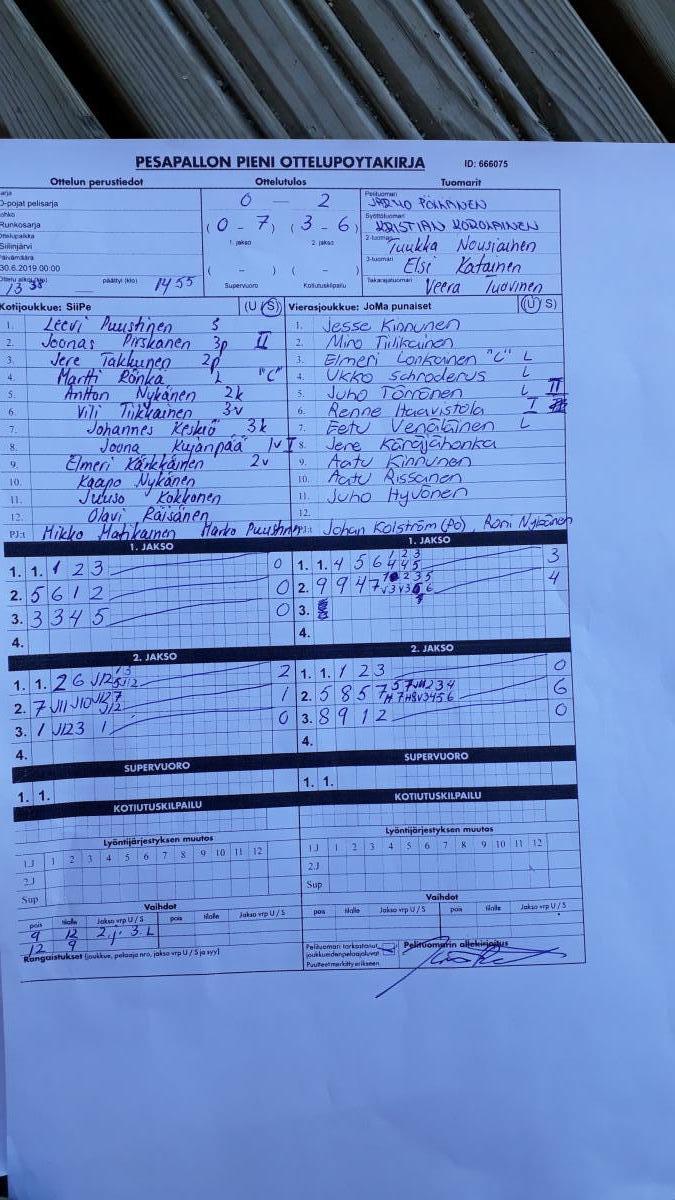 PESAPALLON PIENI OTTELUPOYTAKIRJA ID: 666075
Ottelun perustiedot Ottelutulos Tuomarit
arja
D-pojat pelisarja
ohko
Runkosarja
Ottelupaikka
Siilinjärvi
Päivämäärä
30.6.2019 00:00
Ottelu alkoi (klo) 13 35 päättyi (klo) 14 55
0 - 2
(0 - 7) (3 - 6)
1. jakso 2. jakso
( - ) ( - )
Supervuoro Kotiutuskilpailu
Pelituomari
JARMO PÖLLÄNEN
Syöttötuomari
KRISTIAN KOROLAINEN
2-tuomari
Tuukka Nousiainen
3-tuomari
Elsi Katainen
Takarajatuomari
Veera Tuovinen
Kotijoukkue: SiiPe (U S)
1. Leevi Puustinen S
2. Joonas Pirskanen 3p II
3. Jere Takkunen 2p
4. Martti Rönkä L "C"
5. Antton Nykänen 2k
6. Vili Tiikkainen 3v
7. Johannes Keskiö 3k
8. Joona Kujanpää 1v I
9. Elmeri Kärkkäinen 2v
10. Kaapo Nykänen
11. Juuso Kokkonen
12. Olavi Räisänen
PJ:t Mikko Matikainen Marko Puustinen
Vierasjoukkue: JoMa punaiset (U S)
1. Jesse Kinnunen
2. Miro Tiilikainen
3. Elmeri Lonkainen "C" L
4. Ukko Schroderus L
5. Juho Törrönen L II
6. Renne Haavistola I
7. Eetu Venäläinen L
8. Jere Käräjähonka
9. Aatu Kinnunen
10. Aatu Rissanen
11. Juho Hyvönen
12.
PJ:t Johan Kolström (PÖ), Roni Nykänen
1. JAKSO
1. 1. 1 2 3 0
2. 5 6 1 2 0
3. 3 3 4 5 0
4.
1. JAKSO
1. 1. 4 5 6 3
2. 9 9 4 7 4
3.
4.
2. JAKSO
1. 1. 2 6 J12 2
2. 7 J11 J10 J12 1
3. 1 J12 3 1 0
4.
2. JAKSO
1. 1. 1 2 3 0
2. 5 8 5 7 6
3. 8 9 1 2 0
4.
SUPERVUORO
1. 1.
SUPERVUORO
1. 1.
KOTIUTUSKILPAILU
KOTIUTUSKILPAILU
Lyöntijärjestyksen muutos
1.J 1 2 3 4 5 6 7 8 9 10 11 12
2.J
Sup
Lyöntijärjestyksen muutos
1.J 1 2 3 4 5 6 7 8 9 10 11 12
2.J
Sup
Vaihdot
pois tilalle Jakso vrp U / S pois tilalle Jakso vrp U / S
9 12 2.j. 3.L
12 9
Vaihdot
pois tilalle Jakso vrp U / S pois tilalle Jakso vrp U / S
Rangaistukset (joukkue, pelaaja nro, jakso vrp U / S ja syy)
Pelituomari tarkastanut
joukkueiden pelaajaluvat
Puutteet merkitty erikseen
Pelituomarin allekirjoitus